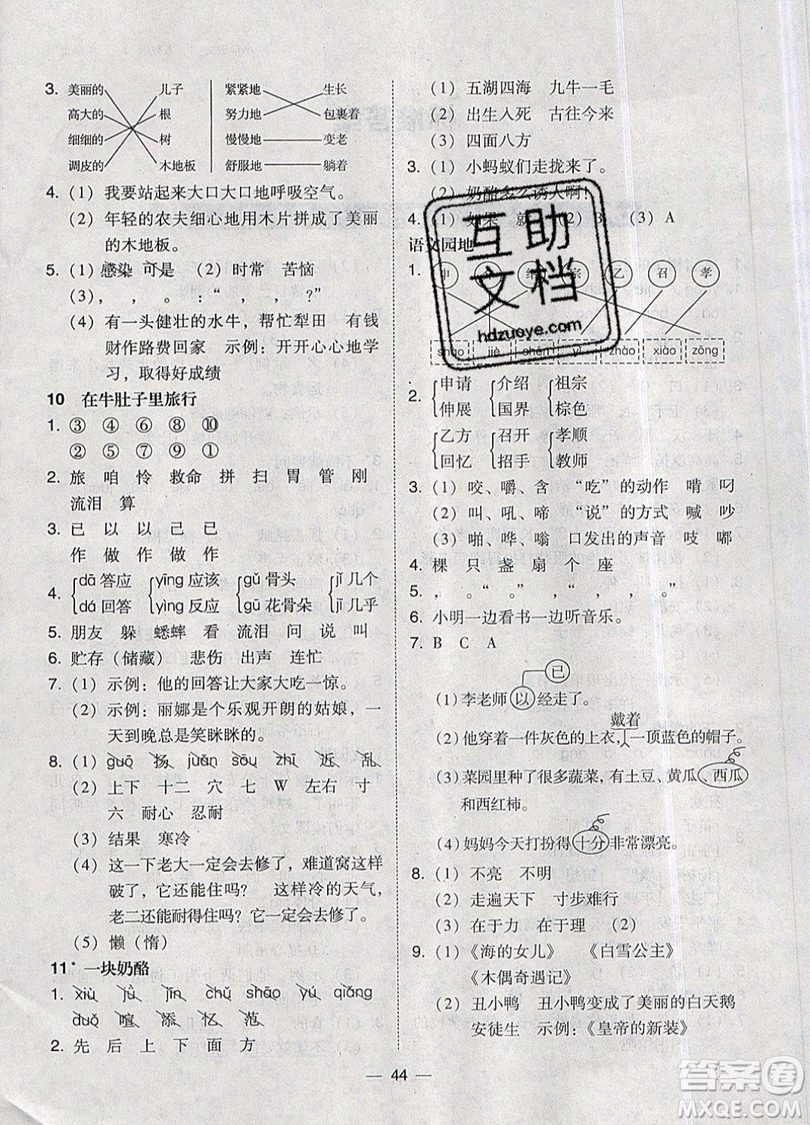 3. 美丽的 儿子 紧紧地 生长
高大的 根 努力地 包裹着
细细的 树 慢慢地 变老
调皮的 木地板 舒服地 躺着
4. (1) 我要站起来大口大口地呼吸空气。
(2) 年轻的农夫细心地用木片拼成了美丽
的木地板。
5. (1) 感染 可是 (2) 时常 苦恼
(3) , , 。 : “ , , ? ”
(4) 有一头健壮的水牛，帮忙犁田 有钱
财作路费回家 示例：开开心心地学
习，取得好成绩
10 在牛肚子里旅行
1. ③ ④ ⑥ ⑧ ⑩
② ⑤ ⑦ ⑨ ①
2. 旅 咱 怜 救命 拼 扫 胃 管 刚
流泪 算
3. 已 以 以 己 已
作 做 作 做 作
4. dā 答应 yīng 应该 gǔ 骨头 jǐ 几个
dá 回答 yìng 反应 gū 花骨朵 jī 几乎
5. 朋友 躲 蟋蟀 看 流泪 问 说 叫
6. 贮存（储藏） 悲伤 出声 连忙
7. (1) 示例：他的回答让大家大吃一惊。
(2) 示例：丽娜是个乐观开朗的姑娘，一
天到晚总是笑眯眯的。
8. (1) guō 扬 juǎn sōu zhī 近 乱
(2) 上下 十二 穴 七 W 厂 寸
六 耐心 忍耐
(3) 结果 寒冷
(4) 这一下老大一定会去修了，难道窝这样
破了，它还能住吗？ 这样冷的天气，
老二还能耐得住吗？它一定会去修了。
(5) 懒（惰）
11* 一块奶酪
1. xiù jù jīn chǔ shāo yú qiáng
duǒ 喧 添 忆 范
2. 先 后 上 下 面 方
(1) 五湖四海 九牛一毛
(2) 出生入死 古往今来
(3) 四面八方
3. (1) 小蚂蚁们走拢来了。
(2) 奶酪多么诱人啊！
4. (1) 如果 就 (2) B (3) A
语文园地
1. 申 介 绍 宗 乙 召 孝
shào jiè shēn yǐ zhào xiào zōng
2. 申请 介绍 祖宗
伸展 国界 棕色
乙方 召开 孝顺
回忆 招手 教师
3. (1) 咬、嚼、含 “吃”的动作 啃 叼
(2) 叫、吼、啼 “说”的方式 喊 吵
(3) 啪、哗、嗡 口发出的声音 吱 嘟
4. 棵 只 盏 扇 个 座
5. , 。 “ ” , , 。
6. 小明一边看书一边听音乐。
7. B C A
已
(1) 李老师以经走了。
戴着
(2) 他穿着一件灰色的上衣，一顶蓝色的帽子。
(3) 菜园里种了很多蔬菜，有土豆、黄瓜、西瓜
和西红柿。
(4) 妈妈今天打扮得十分非常漂亮。
8. (1) 不亮 不明
(2) 走遍天下 寸步难行
(3) 在于力 在于理 (2)
9. (1) 《海的女儿》 《白雪公主》
《木偶奇遇记》
(2) 丑小鸭 丑小鸭变成了美丽的白天鹅
安徒生 示例：《皇帝的新装》
44
互助
文档
hdzuoye.com
答案圈
MXQE.COM